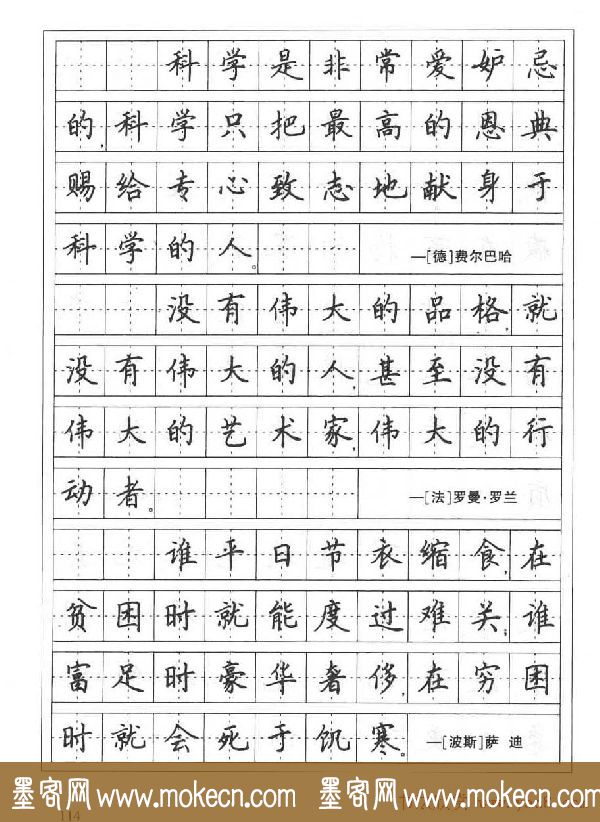 科学是非常爱妒忌
的,科学只把最高的恩典
赐给专心致志地献身于
科学的人。 —[德]费尔巴哈
没有伟大的品格,就
没有伟大的人,甚至没有
伟大的艺术家,伟大的行
动者。 —[法]罗曼·罗兰
谁平日节衣缩食,在
贫困时就能度过难关,谁
富足时豪华奢侈,在穷困
时就会死于饥寒。 —[波斯]萨 迪
墨客网 www.mokecn.com 墨客网 www.mokecn.com
114